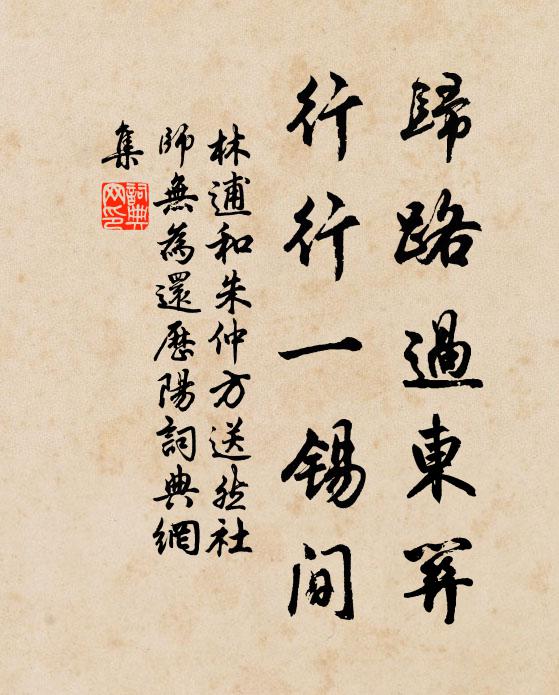 歸路過東關
行行一錫間
林逋和朱仲方送然社
師無為還歷陽詞典網
集
詞典
网印